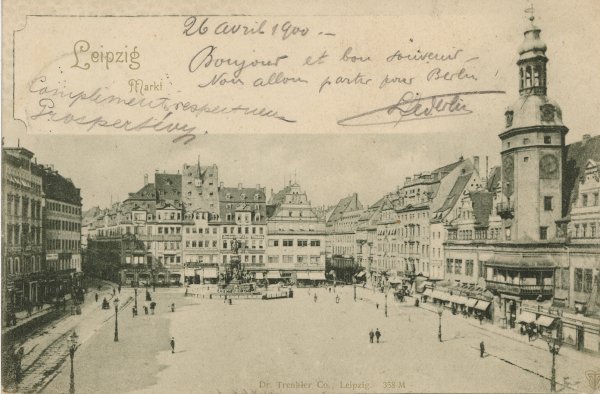 26 avril 1900 –
Leipzig
Markt
Bonjour et bon souvenir
Nous allons partir pour Berlin!
Compliment respectueux
Prosper Lévy
Dr. Trenkler Co., Leipzig. 358 M